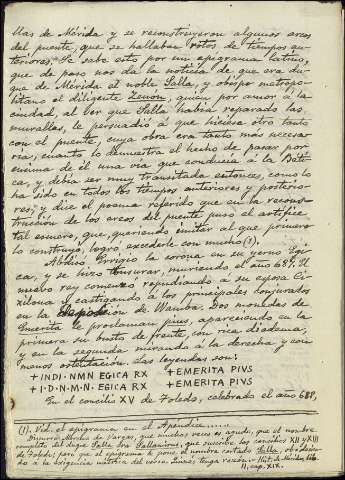 llas de Mérida y se reconstruyeron algunos arcos
del puente, que se hallaban rotos de tiempos an-
teriores. Se sabe esto por un epígrama latino,
que de paso nos da la noticia de que era du-
que de Mérida el noble Salla, y obispo metropo-
litano el diligente Zenon, quien por amor á la
ciudad, al ver que Salla había reparado las
murallas, le persuadió á que hiciese otro tanto
con el puente, cuya obra era tanto más necesa-
ria, cuanto lo demuestra el hecho de pasar por
encima de él una vía que conducía á la Béti-
ca, y debía ser muy transitada entonces, como lo
ha sido en todos los tiempos anteriores y posterio-
res; y dice el poema referido que en la recons-
trucción de los arcos del puente puso el artífice
tal esmero, que, queriendo imitar al que primero
lo construyó, logró excederle con mucho (1).
Abdicó Ervigio la corona en su yerno Egi-
ca, y se hizo tonsurar, muriendo el año 687. El
nuevo rey comenzó repudiando á su esposa Ci-
xilona y castigando á los principales conjurados
en la deposicion de Wamba. Dos monedas de
Emerita le proclaman pius, apareciendo en la
primera su busto de frente, con rica diadema,
y en la segunda mirando á la derecha y con
menos ostentación. Las leyendas son:
+INDI·NMN EGICA RX +EMERITA PIVS
+I·D·N·M·N· EGICA RX +EMERITA PIVS
En el concilio XV de Toledo, celebrado el año 688,
(1). Vid. el epigrama en el Apendice......
Moreno de Vargas, que muchas veces es agudo, que el nombre
completo del duque Salla era Sallanus, que suscribe los concilios XII y XIII
de Toledo; pero que el epigrama le pone el nombre cortado Salla, obedecien-
do á la exigencia métrica del verso. Hist. de Mérida, lib.
II, cap. XIX.